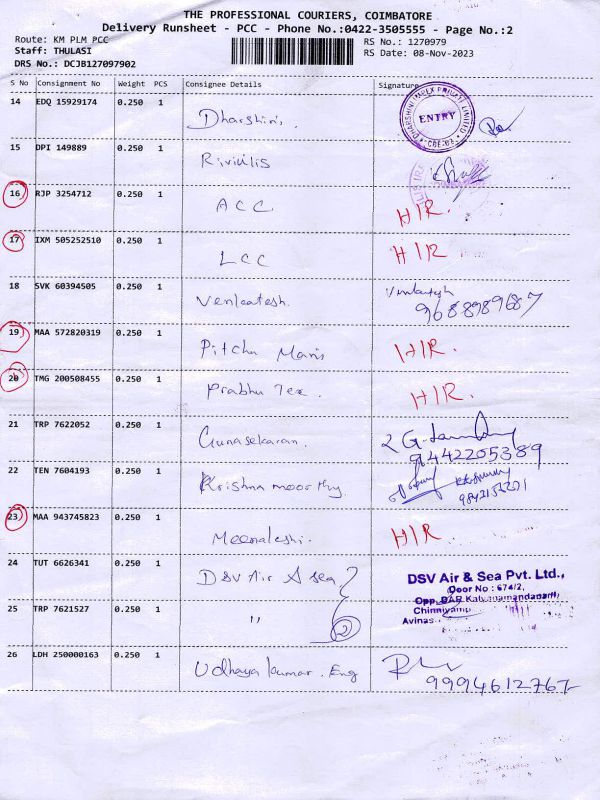 THE PROFESSIONAL COURIERS, COIMBATORE
Delivery Runsheet - PCC - Phone No.:0422-3505555 - Page No.:2
Route: KM PLM PCC
RS No.: 1270979
Staff: THULASI
RS Date: 08-Nov-2023
DRS No.: DCJB127097902
S No Consignment No Weight PCS Consignee Details Signature
14 EDQ 15929174 0.250 1 Dharshinis. ENTRY
15 DPI 149889 0.250 1 Rivulis
16 RJP 3254712 0.250 1 ACC H/R.
17 IXM 505252510 0.250 1 LCC H/R
18 SVK 60394505 0.250 1 Venkatesh. 9688989687
19 MAA 572820319 0.250 1 Pitchu Manis H/R.
20 TMG 200508455 0.250 1 Prabhu Tex. H/R.
21 TRP 7622052 0.250 1 Gunasekaran. 9442205389
22 TEN 7604193 0.250 1 Krishna moorthy.
23 MAA 943745823 0.250 1 Meenakshi. H/R
24 TUT 6626341 0.250 1 DSV Air & Sea DSV Air & Sea Pvt. Ltd.,
Door No : 674/2,
Opp.
25 TRP 7621527 0.250 1 " 2
26 LDH 250000163 0.250 1 Udhaya kumar. Eng 9994612767